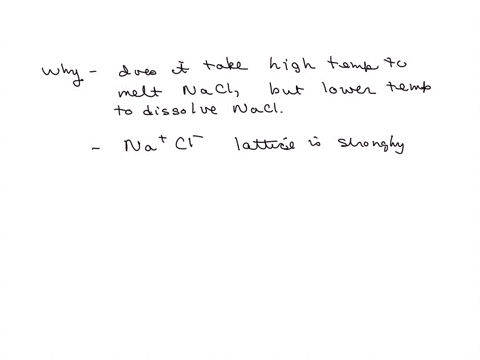 Why - does it take high temp to
melt NaCl, but lower temp
to dissolve NaCl.
- Na⁺ Cl⁻ lattice is strongly